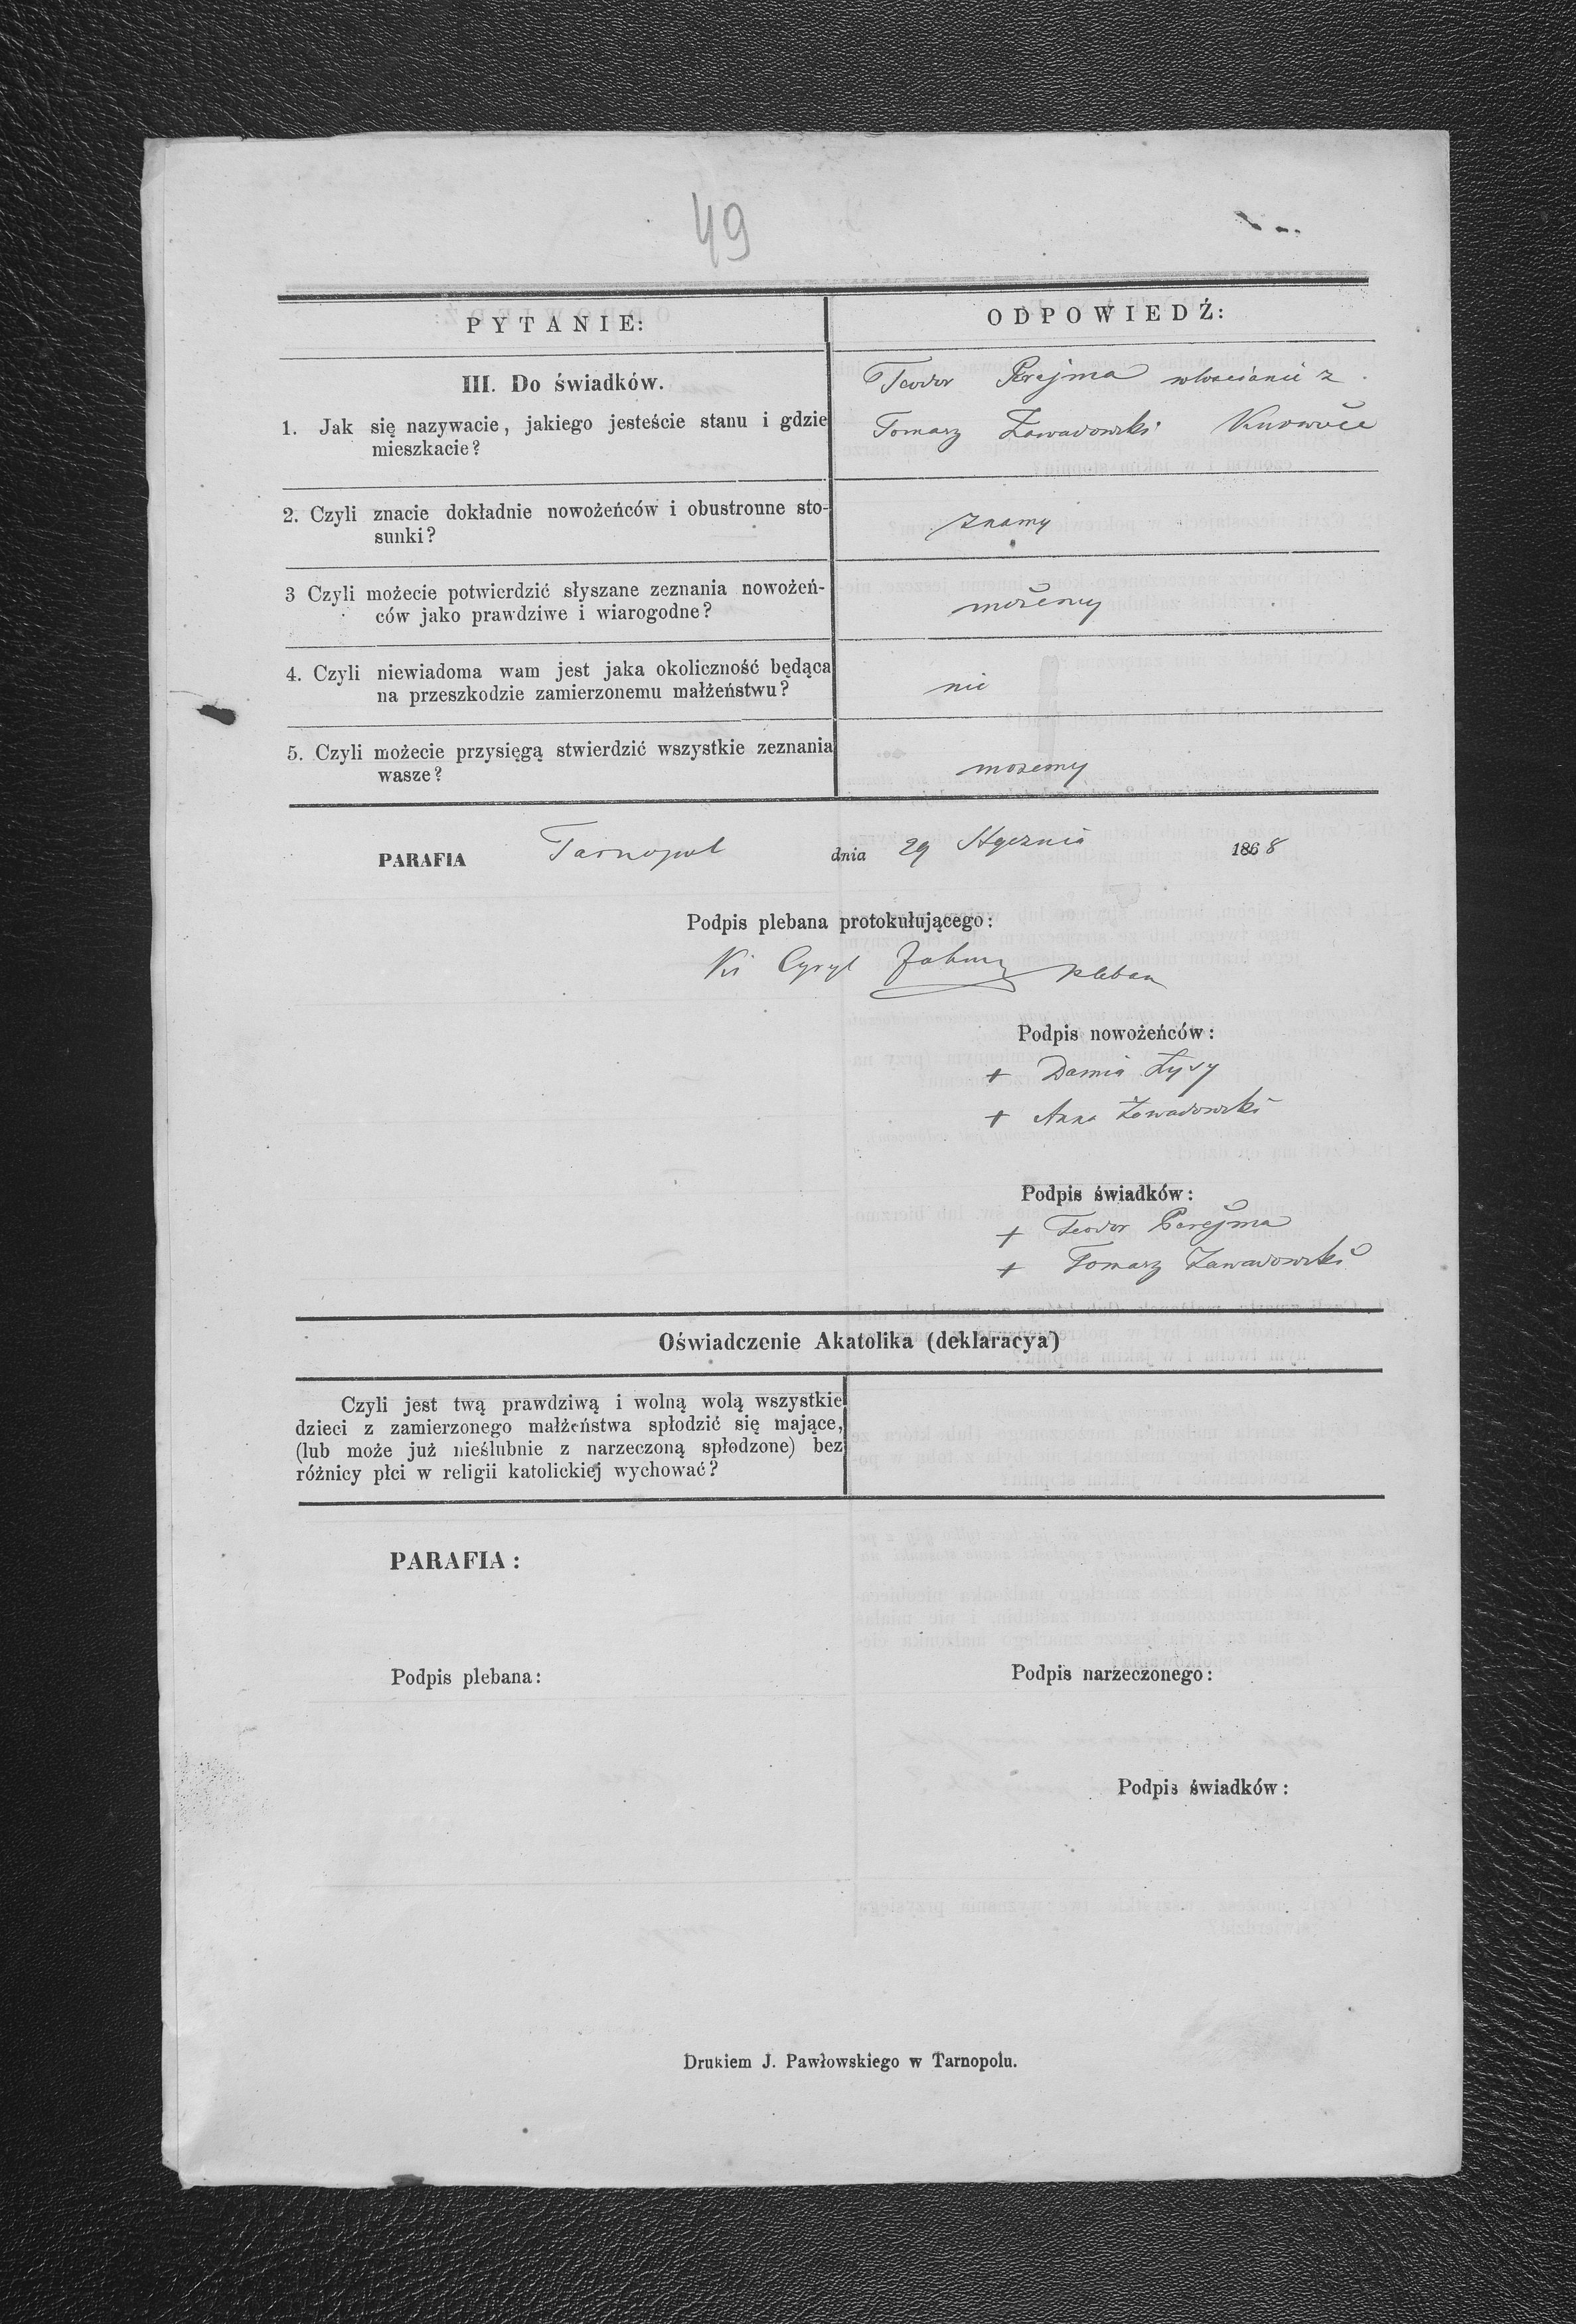 49
PYTANIE:
ODPOWIEDŹ:
III. Do świadków.
1. Jak się nazywacie, jakiego jesteście stanu i gdzie
mieszkacie?
Teodor Perejma włoscianie z
Tomasz Zawadowski
2. Czyli znacie dokładnie nowożeńców i obustronne sto-
sunki?
znamy
3 Czyli możecie potwierdzić słyszane zeznania nowożeń-
ców jako prawdziwe i wiarogodne?
możemy
4. Czyli niewiadoma wam jest jaka okoliczność będąca
na przeszkodzie zamierzonemu małżeństwu?
nie
5. Czyli możecie przysięgą stwierdzić wszystkie zeznania
wasze?
mozemy
PARAFIA Tarnopol dnia 29 Stycznia 1868
Podpis plebana protokułującego:
Cyryl pleban
Podpis nowożeńców:
+ Łysy
+ Anna Zawadowski
Podpis świadków:
+ Teodor Perejma
+ Tomasz Zawadowski
Oświadczenie Akatolika (deklaracya)
Czyli jest twą prawdziwą i wolną wolą wszystkie
dzieci z zamierzonego małżeństwa spłodzić się mające,
(lub może już nieślubnie z narzeczoną spłodzone) bez
różnicy płci w religii katolickiej wychować?
PARAFIA:
Podpis plebana:
Podpis narzeczonego:
Podpis świadków:
Drukiem J. Pawłowskiego w Tarnopolu.